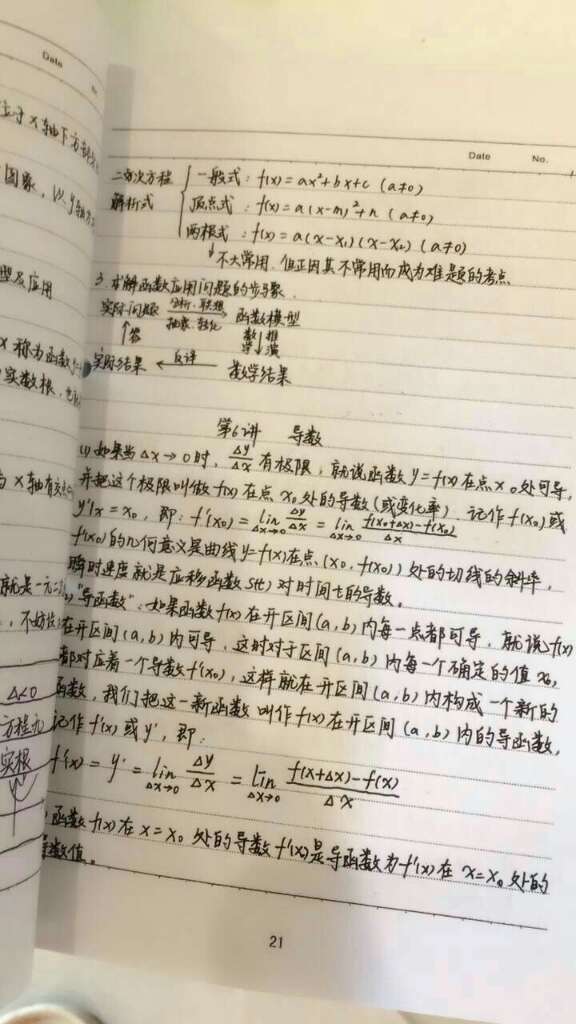 Date
于x轴下方
图象,以y轴为
型及应用
x称为函数y=
实数根,
与x轴有交点
就是一元二
Δ<0
方程无
实根
Date No.
二次方程
解析式
一般式:f(x)=ax²+bx+c (a≠0)
顶点式:f(x)=a(x-m)²+n (a≠0)
两根式:f(x)=a(x-x₁)(x-x₂) (a≠0)
↓不大常用,但正因其不常用而成为难题的考点
3.求解函数应用问题的步骤
实际问题 分析、联想 抽象、转化 → 函数模型
↑答 数学 ↓ 推演
实际结果 ← 反译 数学结果
第6讲 导数
(1)如果当Δx→0时,Δy/Δx有极限,就说函数y=f(x)在点x₀处可导,
并把这个极限叫做f(x)在点x₀处的导数(或变化率) 记作f'(x₀)或
y'|x=x₀,即:f'(x₀)=lim Δx→0 Δy/Δx=lim Δx→0 f(x₀+Δx)-f(x₀)/Δx
f'(x₀)的几何意义是曲线y=f(x)在点(x₀,f(x₀))处的切线的斜率,
瞬时速度就是应移函数S(t)对时间t的导数。
"导函数":如果函数f(x)在开区间(a,b)内每一点都可导,就说f(x)
在开区间(a,b)内可导,这时对于区间(a,b)内每一个确定的值x₀,
都对应着一个导数f'(x₀),这样就在开区间(a,b)内构成一个新的
函数,我们把这一新函数叫作f(x)在开区间(a,b)内的导函数,
记作f'(x)或y',即:
f'(x)=y'=lim Δx→0 Δy/Δx=lim Δx→0 f(x+Δx)-f(x)/Δx
函数f(x)在x=x₀处的导数f'(x)是导函数为f'(x)在x=x₀处的
导数值。
21